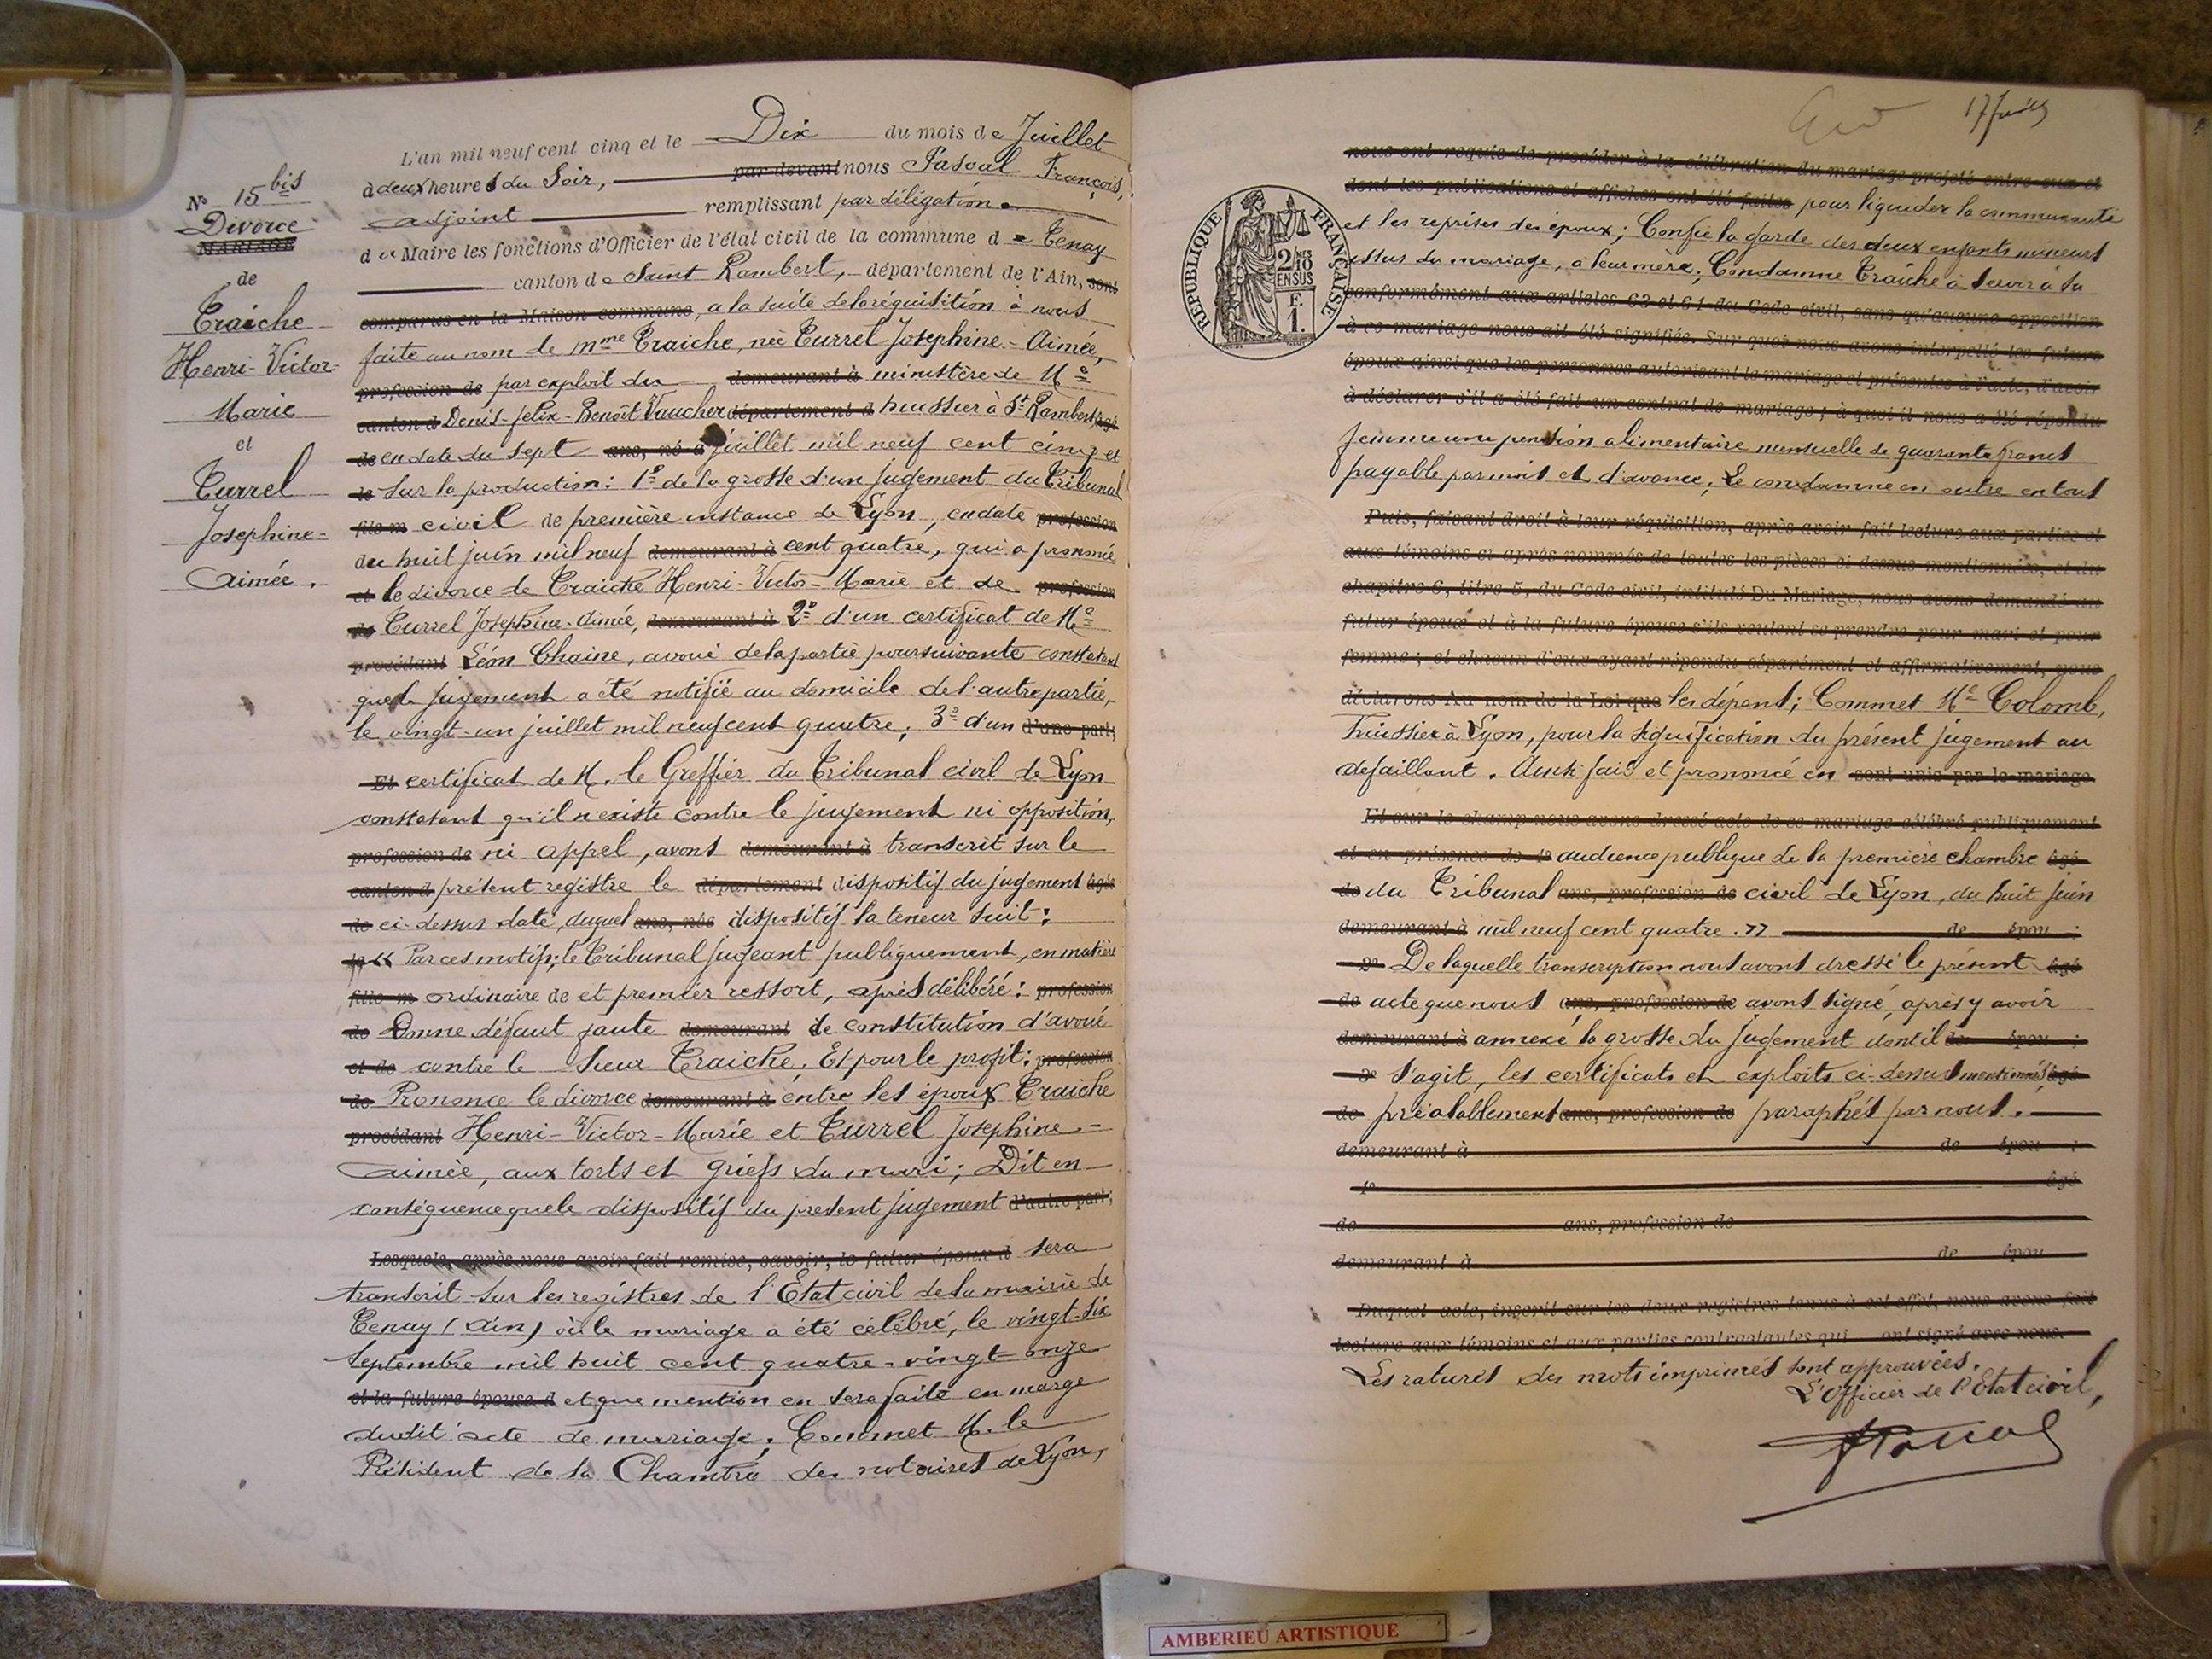 L'an mil neuf cent cinq et le Dix du mois de Juillet
à deux heures du Soir, par-devant nous Pascal François,
adjoint remplissant par délégation
du Maire les fonctions d'Officier de l'état civil de la commune de Tenay
canton de Saint Rambert, département de l'Ain, sont
comparus en la Maison commune, a la suite de la réquisition à nous
faite au nom de Mme Traiche, née Turrel Josephine-Aimée,
profession de par exploit du demeurant à ministère de Me
canton d Denis-felix-Benoît Vaucher département d huissier à St Rambert âgé
de en date du sept ans, né à juillet mil neuf cent cinq et
le Sur la production: 1º de la grosse d'un jugement du Tribunal
fils m civil de première instance de Lyon, en date profession
du huit juin mil neuf demeurant à cent quatre, qui a prononcé
et le divorce de Traiche Henri-Victor-Marie et de profession
de Turrel Josephine-Aimée, demeurant à 2º d'un certificat de Me
procédant Léon Chaine, avoué de la partie poursuivante constatant
que le jugement a été notifié au domicile de l'autre partie,
le vingt-un juillet mil neuf cent quatre; 3º d'un d'une part;
Et certificat de M. le Greffier du Tribunal civil de Lyon
constatant qu'il n'existe contre le jugement ni opposition,
profession de ni appel, avons demeurant à transcrit sur le
canton d présent registre le département dispositif du jugement âgée
de ci-dessus daté, duquel ans, née dispositif la teneur suit:
le « Par ces motifs; le Tribunal jugeant publiquement, en matière
fille m ordinaire de et premier ressort, après délibéré: profession
de Donne défaut faute demeurant de constitution d'avoué
et de contre le Sieur Traiche; Et pour le profit: profession
de Prononce le divorce demeurant à entre les époux Traiche
procédant Henri-Victor-Marie et Turrel Josephine-
Aimée, aux torts et griefs du mari; Dit en
conséquence que le dispositif du présent jugement d'autre part;
Lesquels, après nous avoir fait remise, savoir, le futur époux d sera
transcrit sur les registres de l'Etat civil de la mairie de
Tenay (Ain) où le mariage a été célébré, le vingt-six
Septembre mil huit cent quatre-vingt onze
et la future épouse d et que mention en sera faite en marge
dudit acte de mariage; Commet M. le
Président de la Chambre des notaires de Lyon,
No 15 bis
Divorce
MARIAGE
de
Traiche
Henri-Victor-
Marie
et
Turrel
Josephine-
Aimée.
17 Juillet
nous ont requis de procéder à la célébration du mariage projeté entre eux et
dont les publications et affiches ont été faites pour liquider la communauté
et les reprises des époux; Confie la garde des deux enfants mineurs
issus du mariage, à leur mère; Condamne Traiche à servir à sa
conformément aux articles 63 et 64 du Code civil, sans qu'aucune opposition
à ce mariage nous ait été signifiée. Sur quoi nous avons interpellé les futurs
époux ainsi que les personnes autorisant le mariage et présentes à l'acte, d'avoir
à déclarer s'il a été fait un contrat de mariage; à quoi il nous a été répondu
femme une pension alimentaire mensuelle de quarante francs
payable par mois et d'avance; Le condamne en outre en tous
Puis, faisant droit à leur réquisition, après avoir fait lecture aux parties et
aux témoins ci après nommés de toutes les pièces ci dessus mentionnées, et du
chapitre 6, titre 5, du Code civil, intitulé Du Mariage, nous avons demandé au
futur époux et à la future épouse s'ils veulent se prendre pour mari et pour
femme; et chacun d'eux ayant répondu séparément et affirmativement, nous
déclarons Au nom de la Loi que les dépens; Commet Me Colomb,
huissier à Lyon, pour la signification du présent jugement au
defaillant. Ainsi fait et prononcé en sont unis par le mariage
Et sur le champ nous avons dressé acte de ce mariage célébré publiquement
et en présence de 1º audience publique de la première chambre âgé
de du Tribunal ans, profession de civil de Lyon, du huit Juin
demeurant à mil neuf cent quatre. » de épou ;
2º De laquelle transcription nous avons dressé le présent âgé
de acte que nous ans, profession de avons signé, après y avoir
demeurant à annexé la grosse du jugement dont il de épou ;
3º s'agit, les certificats et exploits ci-dessus mentionnés âgé
de préalablement ans, profession de paraphés par nous.
demeurant à de épou ;
4º âgé
de ans, profession de
demeurant à de épou
Duquel acte, inscrit sur les deux registres tenus à cet effet, nous avons fait
lecture aux témoins et aux parties contractantes qui ont signé avec nous.
Les ratures des mots imprimés sont approuvées.
L'Officier de l'Etat civil,
FPascal
RÉPUBLIQUE FRANÇAISE
2/10MES
EN SUS
F.
1.
AMBERIEU ARTISTIQUE